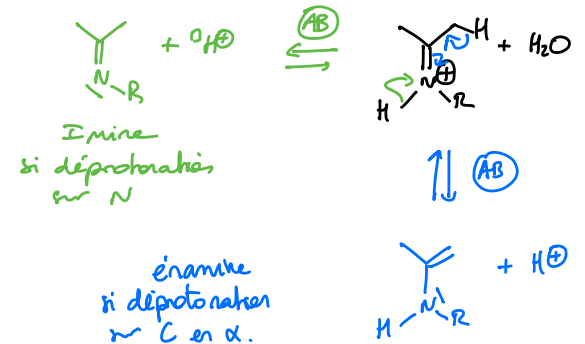 + H⊕
AB
H
+ H₂O
N
R
N⊕
H
R
Imine
si déprotonation
sur N
AB
énamine
si déprotonation
sur C en α.
+ H⊕
N
H
R